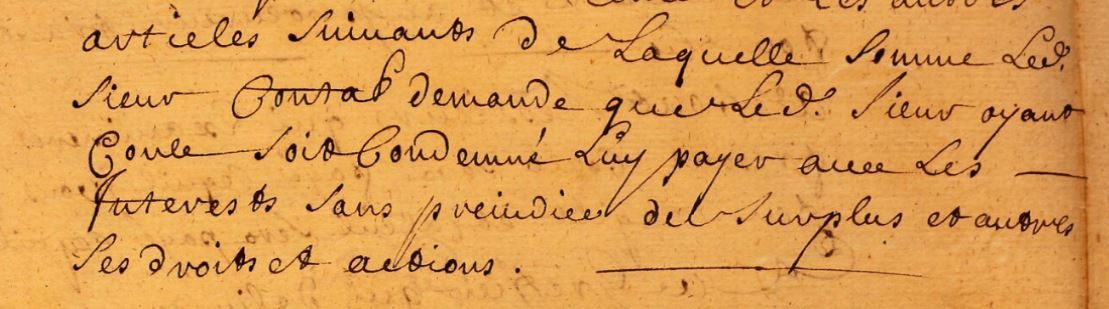 et les autres
articles suivants de Laquelle somme Led.
sieur Contal demande que Led. sieur oyant
Conte soit Condemné Luy payer avec Les
Interests sans preiudice du surplus et autres
ses droits et actions.